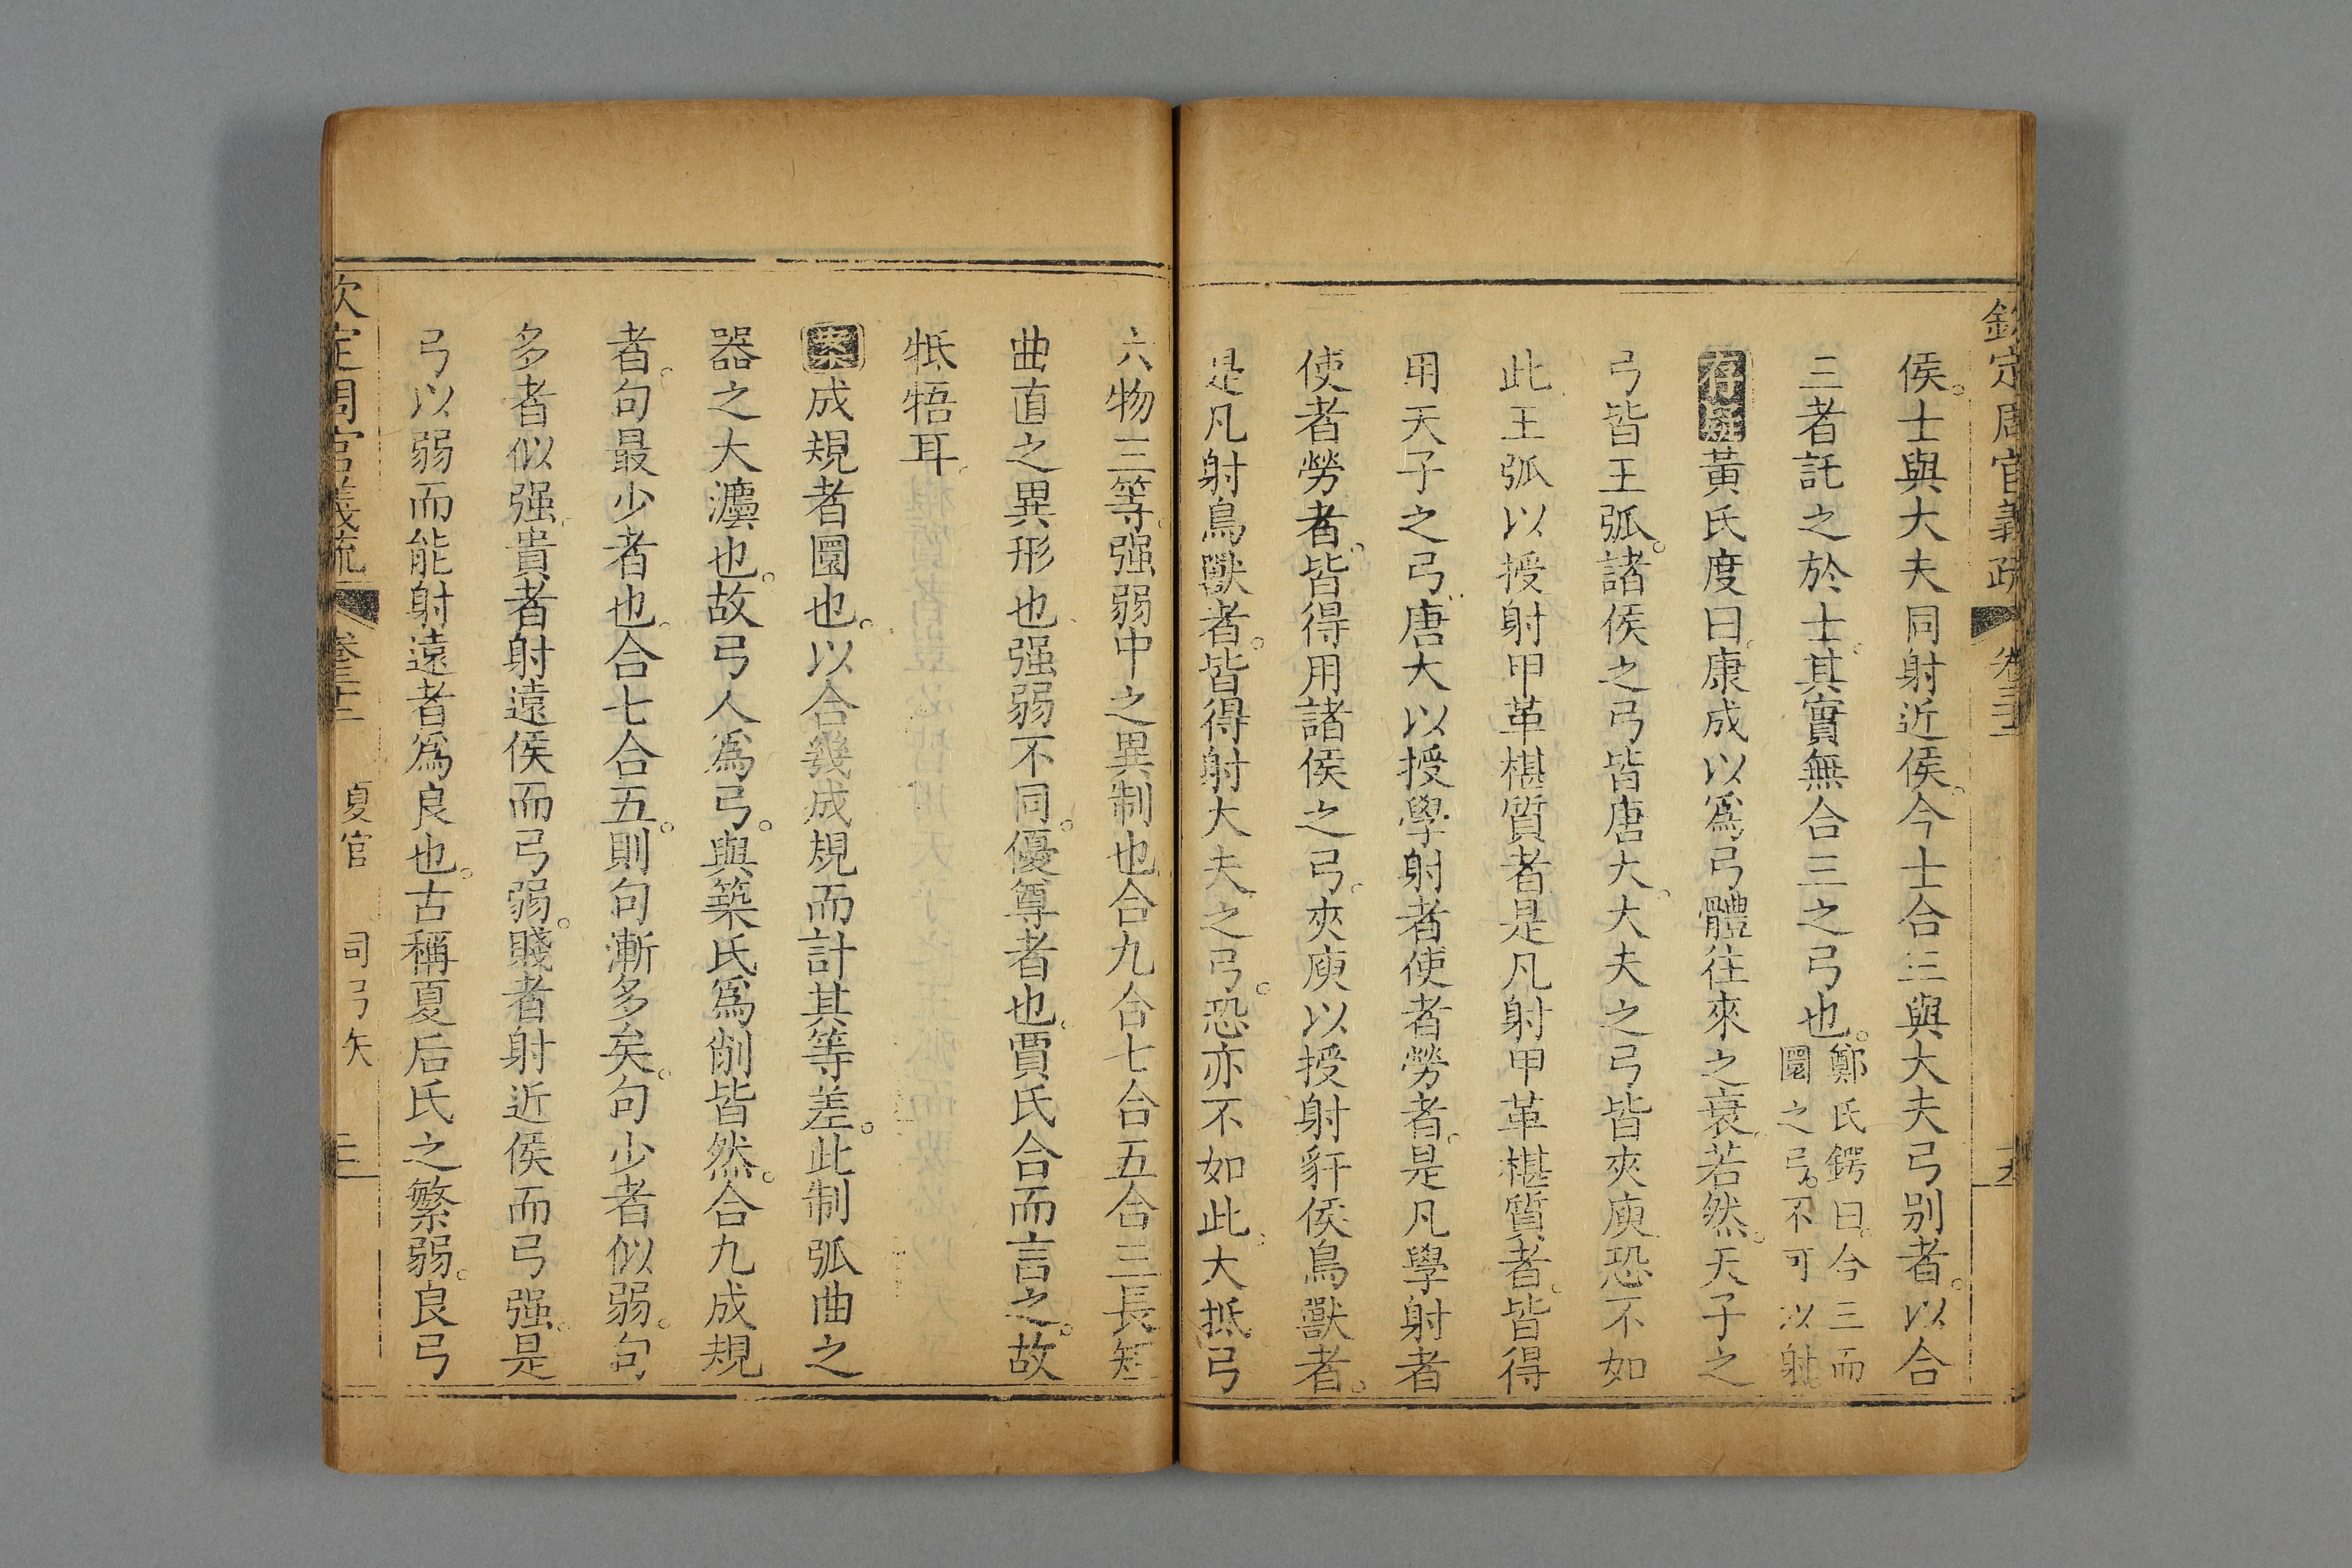 欽定周官義疏 卷三十二
侯。士與大夫同射近侯。今士合三與大夫弓别者。以合
三者託之於士。其實無合三之弓也。鄭氏鍔曰。今三而
圜之弓。不可以射。
存疑黃氏度曰。康成以爲弓體往來之衰。若然。天子之
弓皆王弧。諸侯之弓皆唐大。大夫之弓皆夾庾。恐不如
此。王弧以授射甲革椹質者。是凡射甲革椹質者。皆得
用天子之弓。唐大以授學射者使者勞者。是凡學射者
使者勞者。皆得用諸侯之弓。夾庾以授射豻侯鳥獸者。
是凡射鳥獸者。皆得射大夫之弓。恐亦不如此。大抵弓
六物三等。强弱中之異制也。合九合七合五合三。長短
曲直之異形也。强弱不同。優尊者也。賈氏合而言之。故
牴牾耳。
案成規者圜也。以合幾成規而計其等差。此制弧曲之
器之大灋也。故弓人爲弓。與築氏爲削皆然。合九成規
者。句最少者也。合七合五。則句漸多矣。句少者似弱。句
多者似强。貴者射遠侯而弓弱。賤者射近侯而弓强。是
弓以弱而能射遠者爲良也。古稱夏后氏之繁弱。良弓
欽定周官義疏 卷三十二 夏官 司弓矢